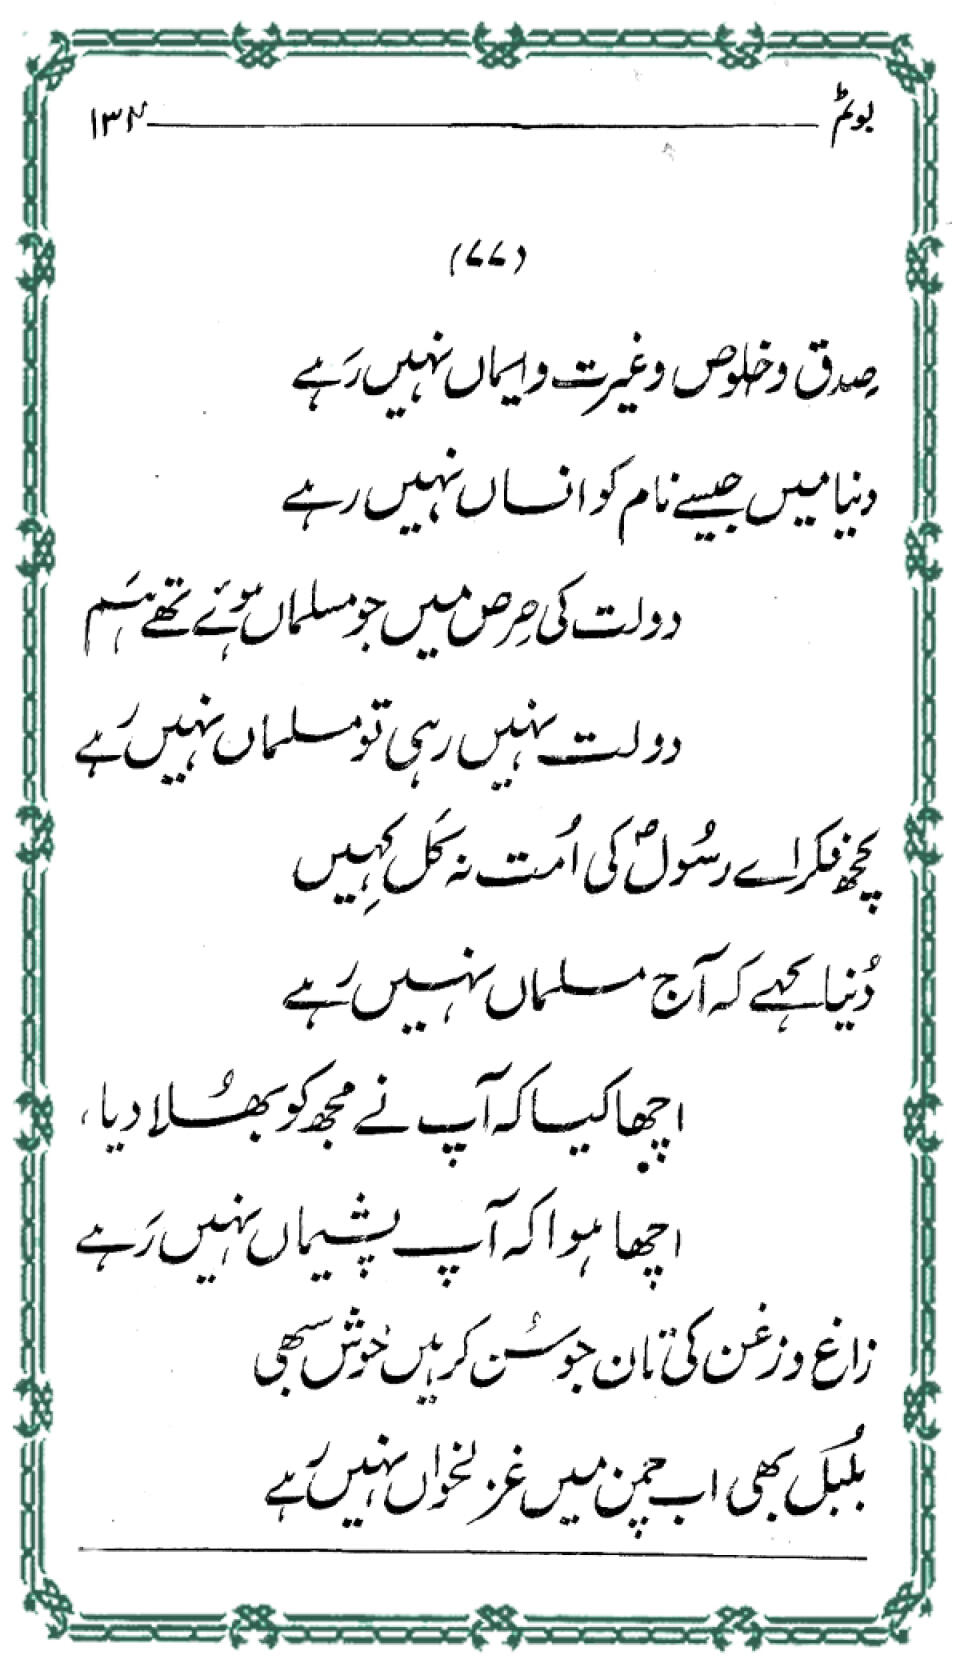 بوٹم ۱۳۴
(۷۷)
صِدق و خلوص و غیرت و ایماں نہیں رَہے
دنیا میں جیسے نام کو انساں نہیں رہے
دولت کی حِرص میں جو مسلماں ہوئے تھے ہَم
دولت نہیں رہی تو مسلماں نہیں رَہے
کچھ فکر اے رسُولؐ کی اُمت نہ کَل کہِیں
دُنیا کہے کہ آج مسلماں نہیں رہے
اچھا کیا کہ آپ نے مجھ کو بھُلا دیا،
اچھا ہوا کہ آپ پشیماں نہیں رَہے
زاغ و زغن کی تان جو سُن کر ہیں خوش سبھی
بُلبُل بھی اب چمن میں غزلخواں نہیں رہے